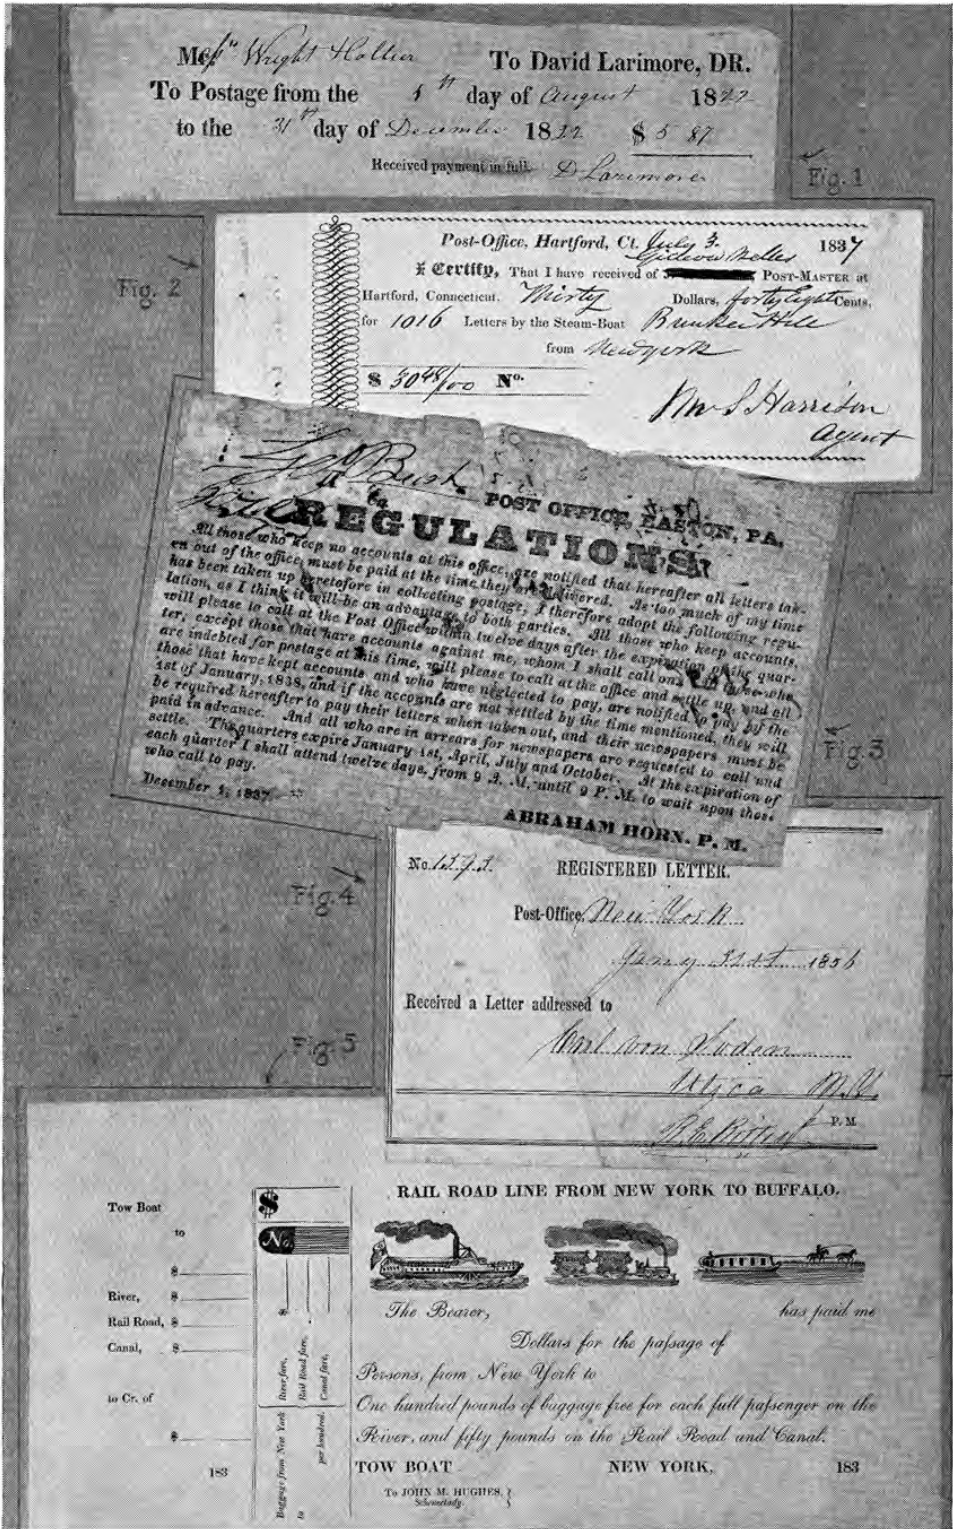 Messrs Wright & Hollier To David Larimore, DR.
To Postage from the 5th day of August 1822
to the 31st day of December 1822 $ 5 87
Received payment in full. D Larimore
Fig. 1
Fig. 2
Post-Office, Hartford, Ct. July 3. 1837
Gideon Welles
I Certify, That I have received of POST-MASTER at
Hartford, Connecticut. Thirty Dollars, forty Eight Cents,
for 1016 Letters by the Steam-Boat Bunker Hill
from New york
$ 30 48/00 No.
Wm S Harrison
Agent
Geo Bush
POST OFFICE, EASTON, PA,
REGULATIONS
All those who keep no accounts at this office, are notified that hereafter all letters tak-
en out of the office, must be paid at the time they are delivered. As too much of my time
has been taken up heretofore in collecting postage, I therefore adopt the following regu-
lation, as I think it will be an advantage to both parties. All those who keep accounts,
will please to call at the Post Office within twelve days after the expiration of the quar-
ter, except those that have accounts against me, whom I shall call on. All those who
are indebted for postage at this time, will please to call at the office and settle up, and all
those that have kept accounts and who have neglected to pay, are notified to pay by the
1st of January, 1838, and if the accounts are not settled by the time mentioned, they will
be required hereafter to pay their letters when taken out, and their newspapers must be
paid in advance. And all who are in arrears for newspapers are requested to call and
settle. The quarters expire January 1st, April, July and October. At the expiration of
each quarter I shall attend twelve days, from 9 A. M. until 9 P. M. to wait upon those
who call to pay.
December 1, 1837.
ABRAHAM HORN. P. M.
Fig 3
Fig. 4
No. 1593. REGISTERED LETTER.
Post-Office, New York
Jany 31st 1856
Received a Letter addressed to
Carl von Soden
Utica N.Y.
P. M
Fig 5
RAIL ROAD LINE FROM NEW YORK TO BUFFALO.
Tow Boat
to
$
River, $
Rail Road, $
Canal, $
to Cr. of
$
183
$
No.
$
River fare,
Rail Road fare,
Canal fare,
Baggage from New York
to
per hundred.
The Bearer, has paid me
Dollars for the passage of
Persons, from New York to
One hundred pounds of baggage free for each full passenger on the
River, and fifty pounds on the Rail Road and Canal.
TOW BOAT NEW YORK, 183
To JOHN M. HUGHES,
Schenectady.